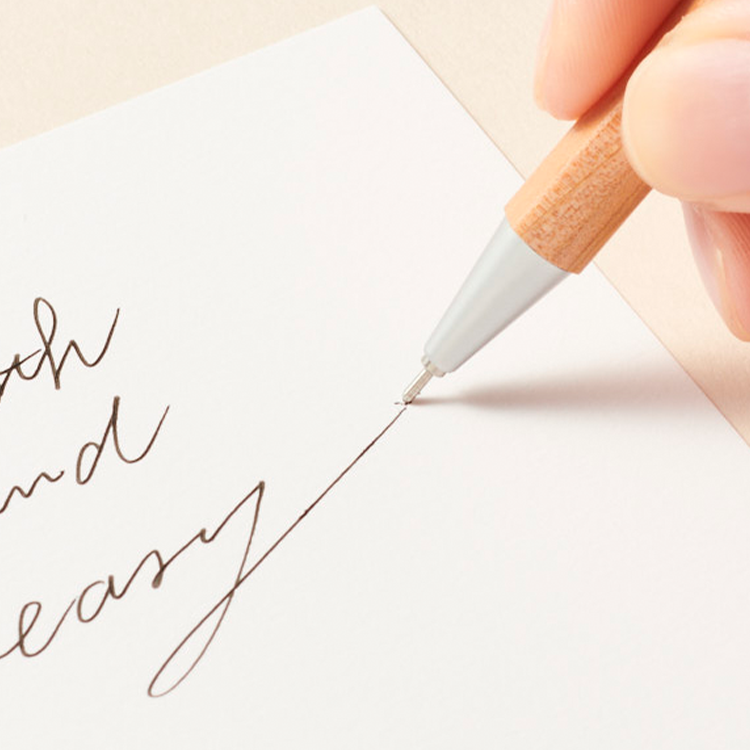 th
nd
easy